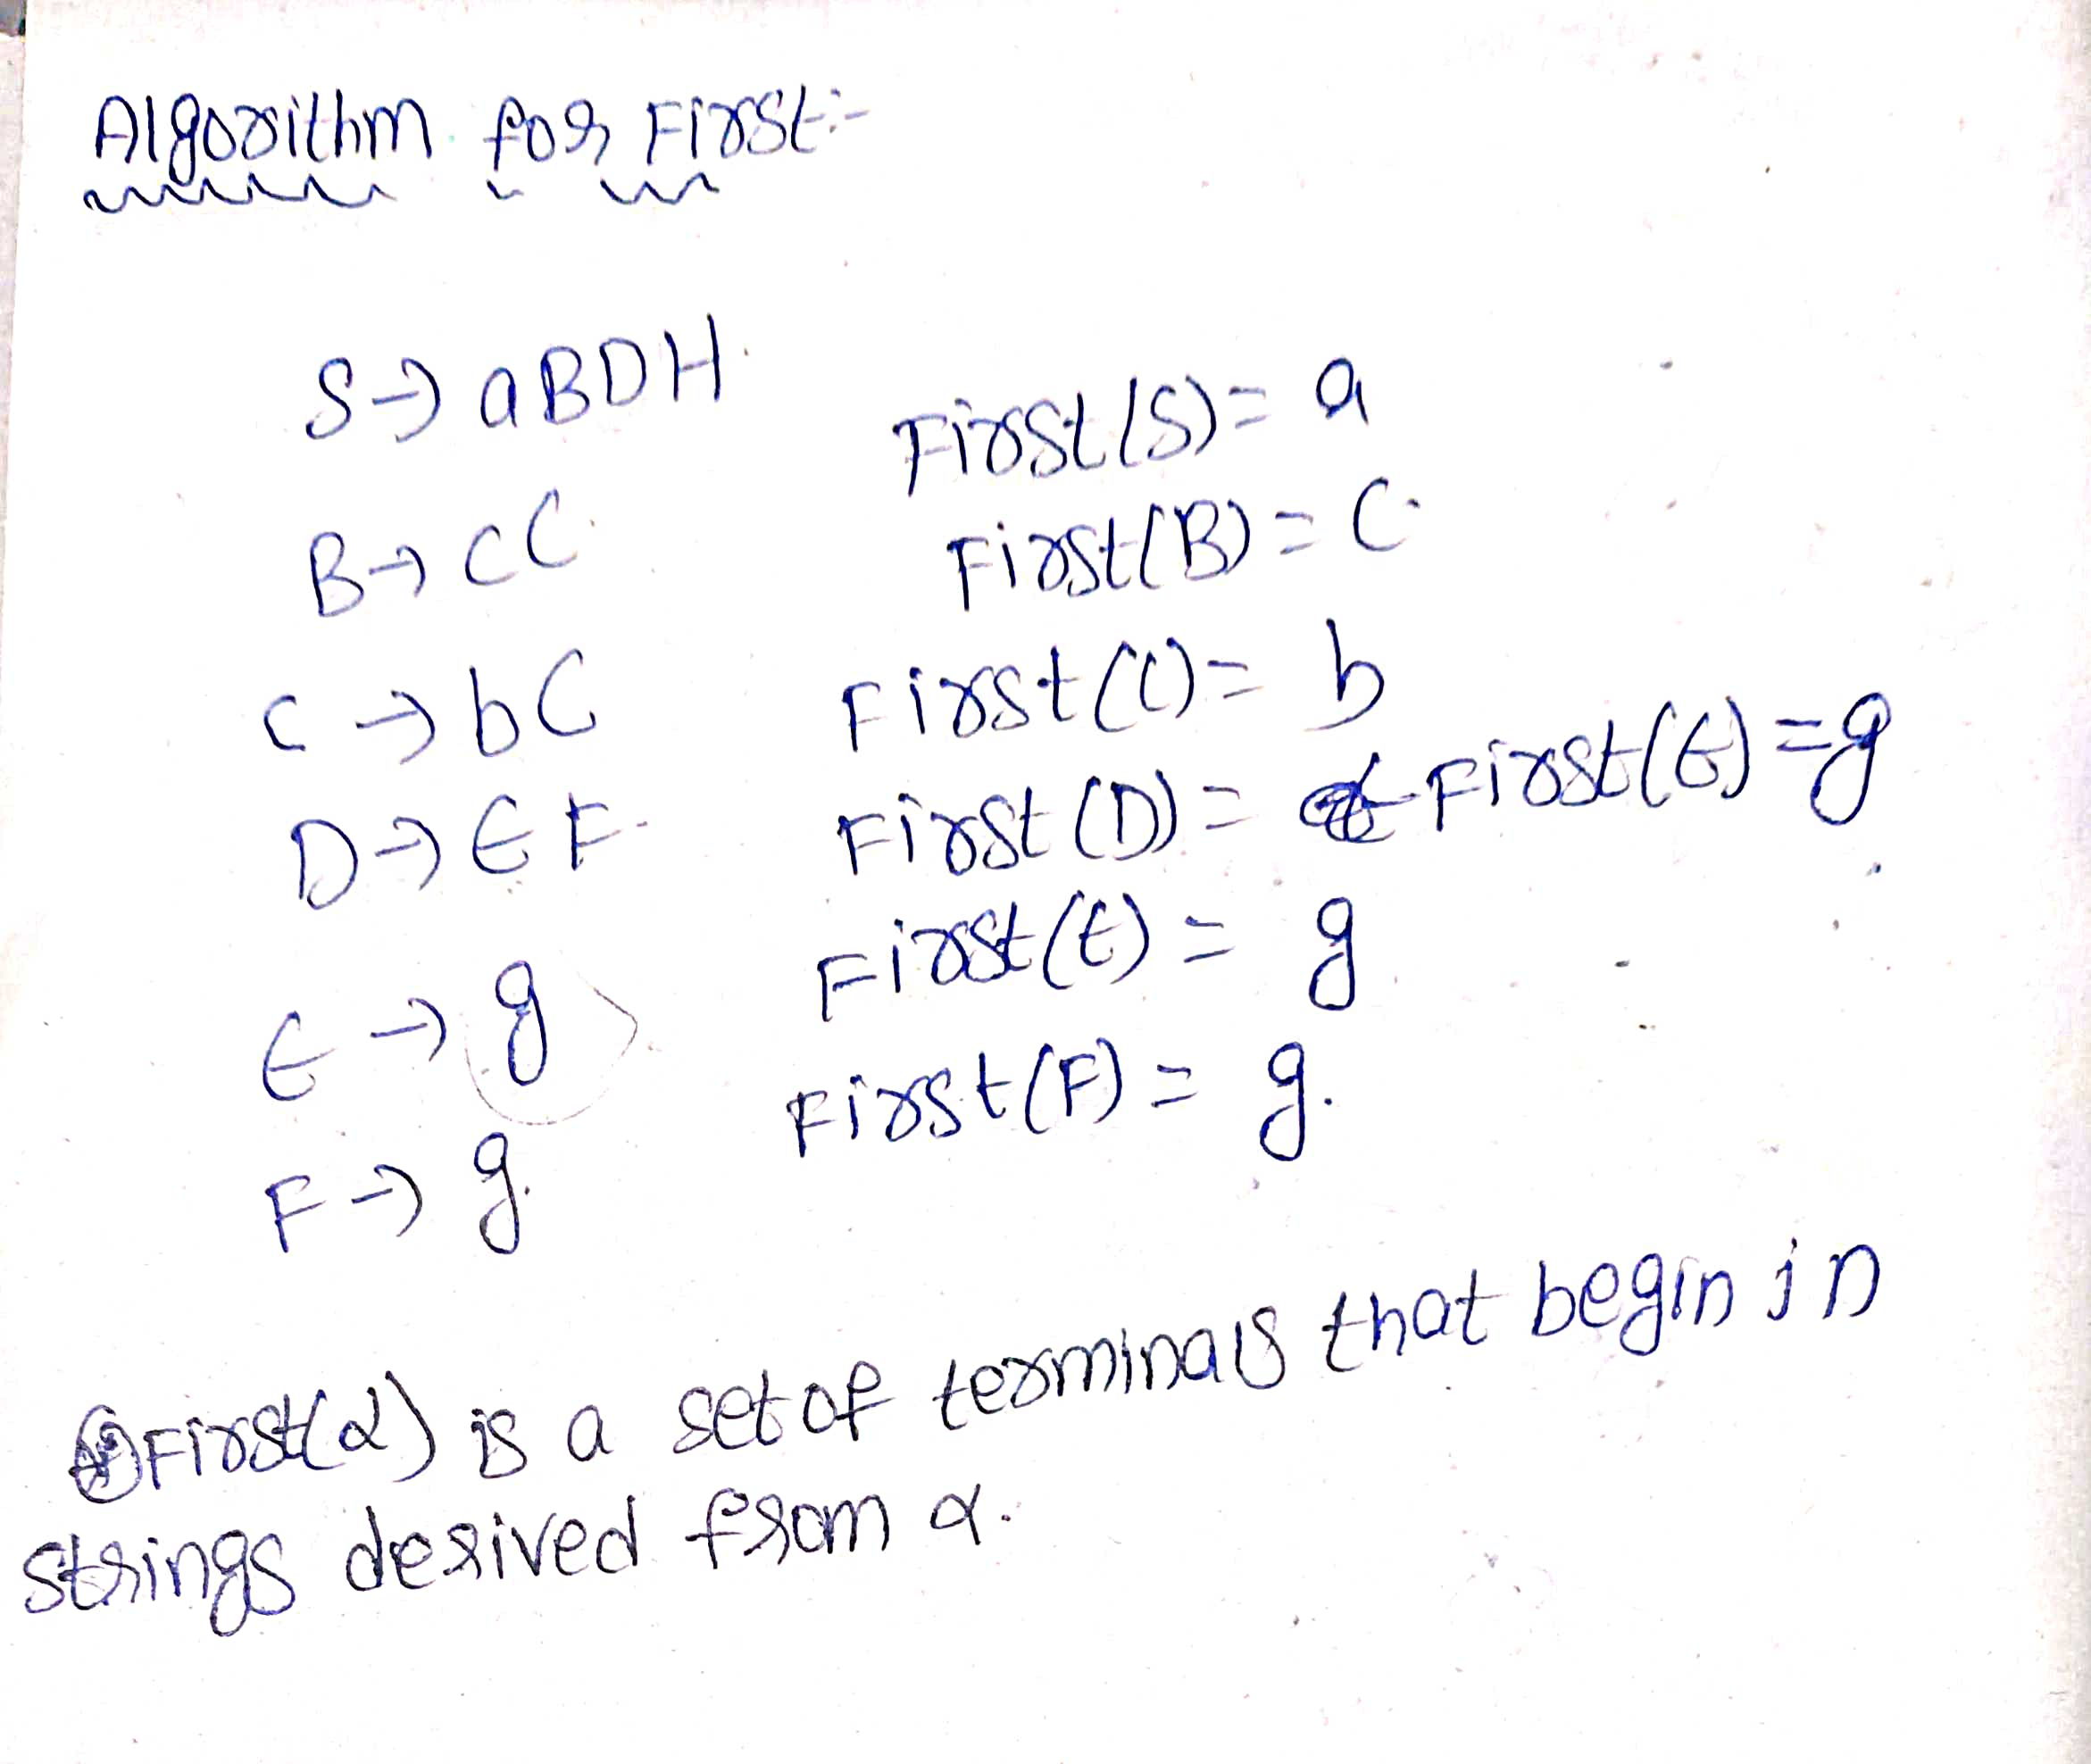 Algorithm for First:-
S→ aBDH
First(S)= a
B→ cC
First(B)= C
c → bC
First(C)= b
D→ EF
First(D)= First(E)=g
E → g
First(E) = g
F → g.
First(F) = g.
First(α) is a set of terminals that begin in
strings derived from α.